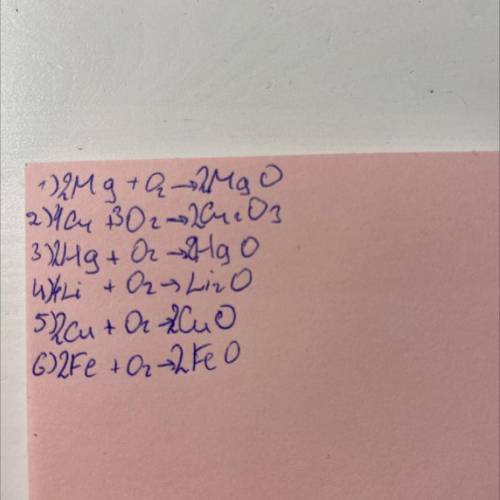 1) 2Mg + O2 → 2MgO
2) 4Cu + 3O2 → 2Cu2O3
3) 2Hg + O2 → 2HgO
4) 4Li + O2 → Li2O
5) 2Cu + O2 → 2CuO
6) 2Fe + O2 → 2FeO